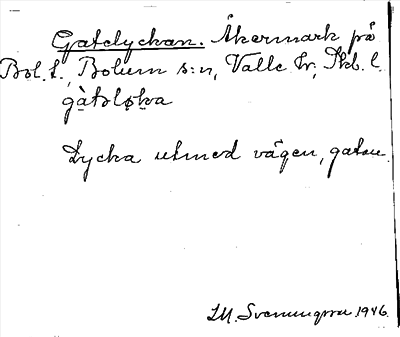 Gatelyckan. Åkermark på
Bol. t., Bolum s:n, Valle hr, Skb. l.
gàtəløka
Lycka utmed vägen, gatan.
LM. Svenungsson 1946.